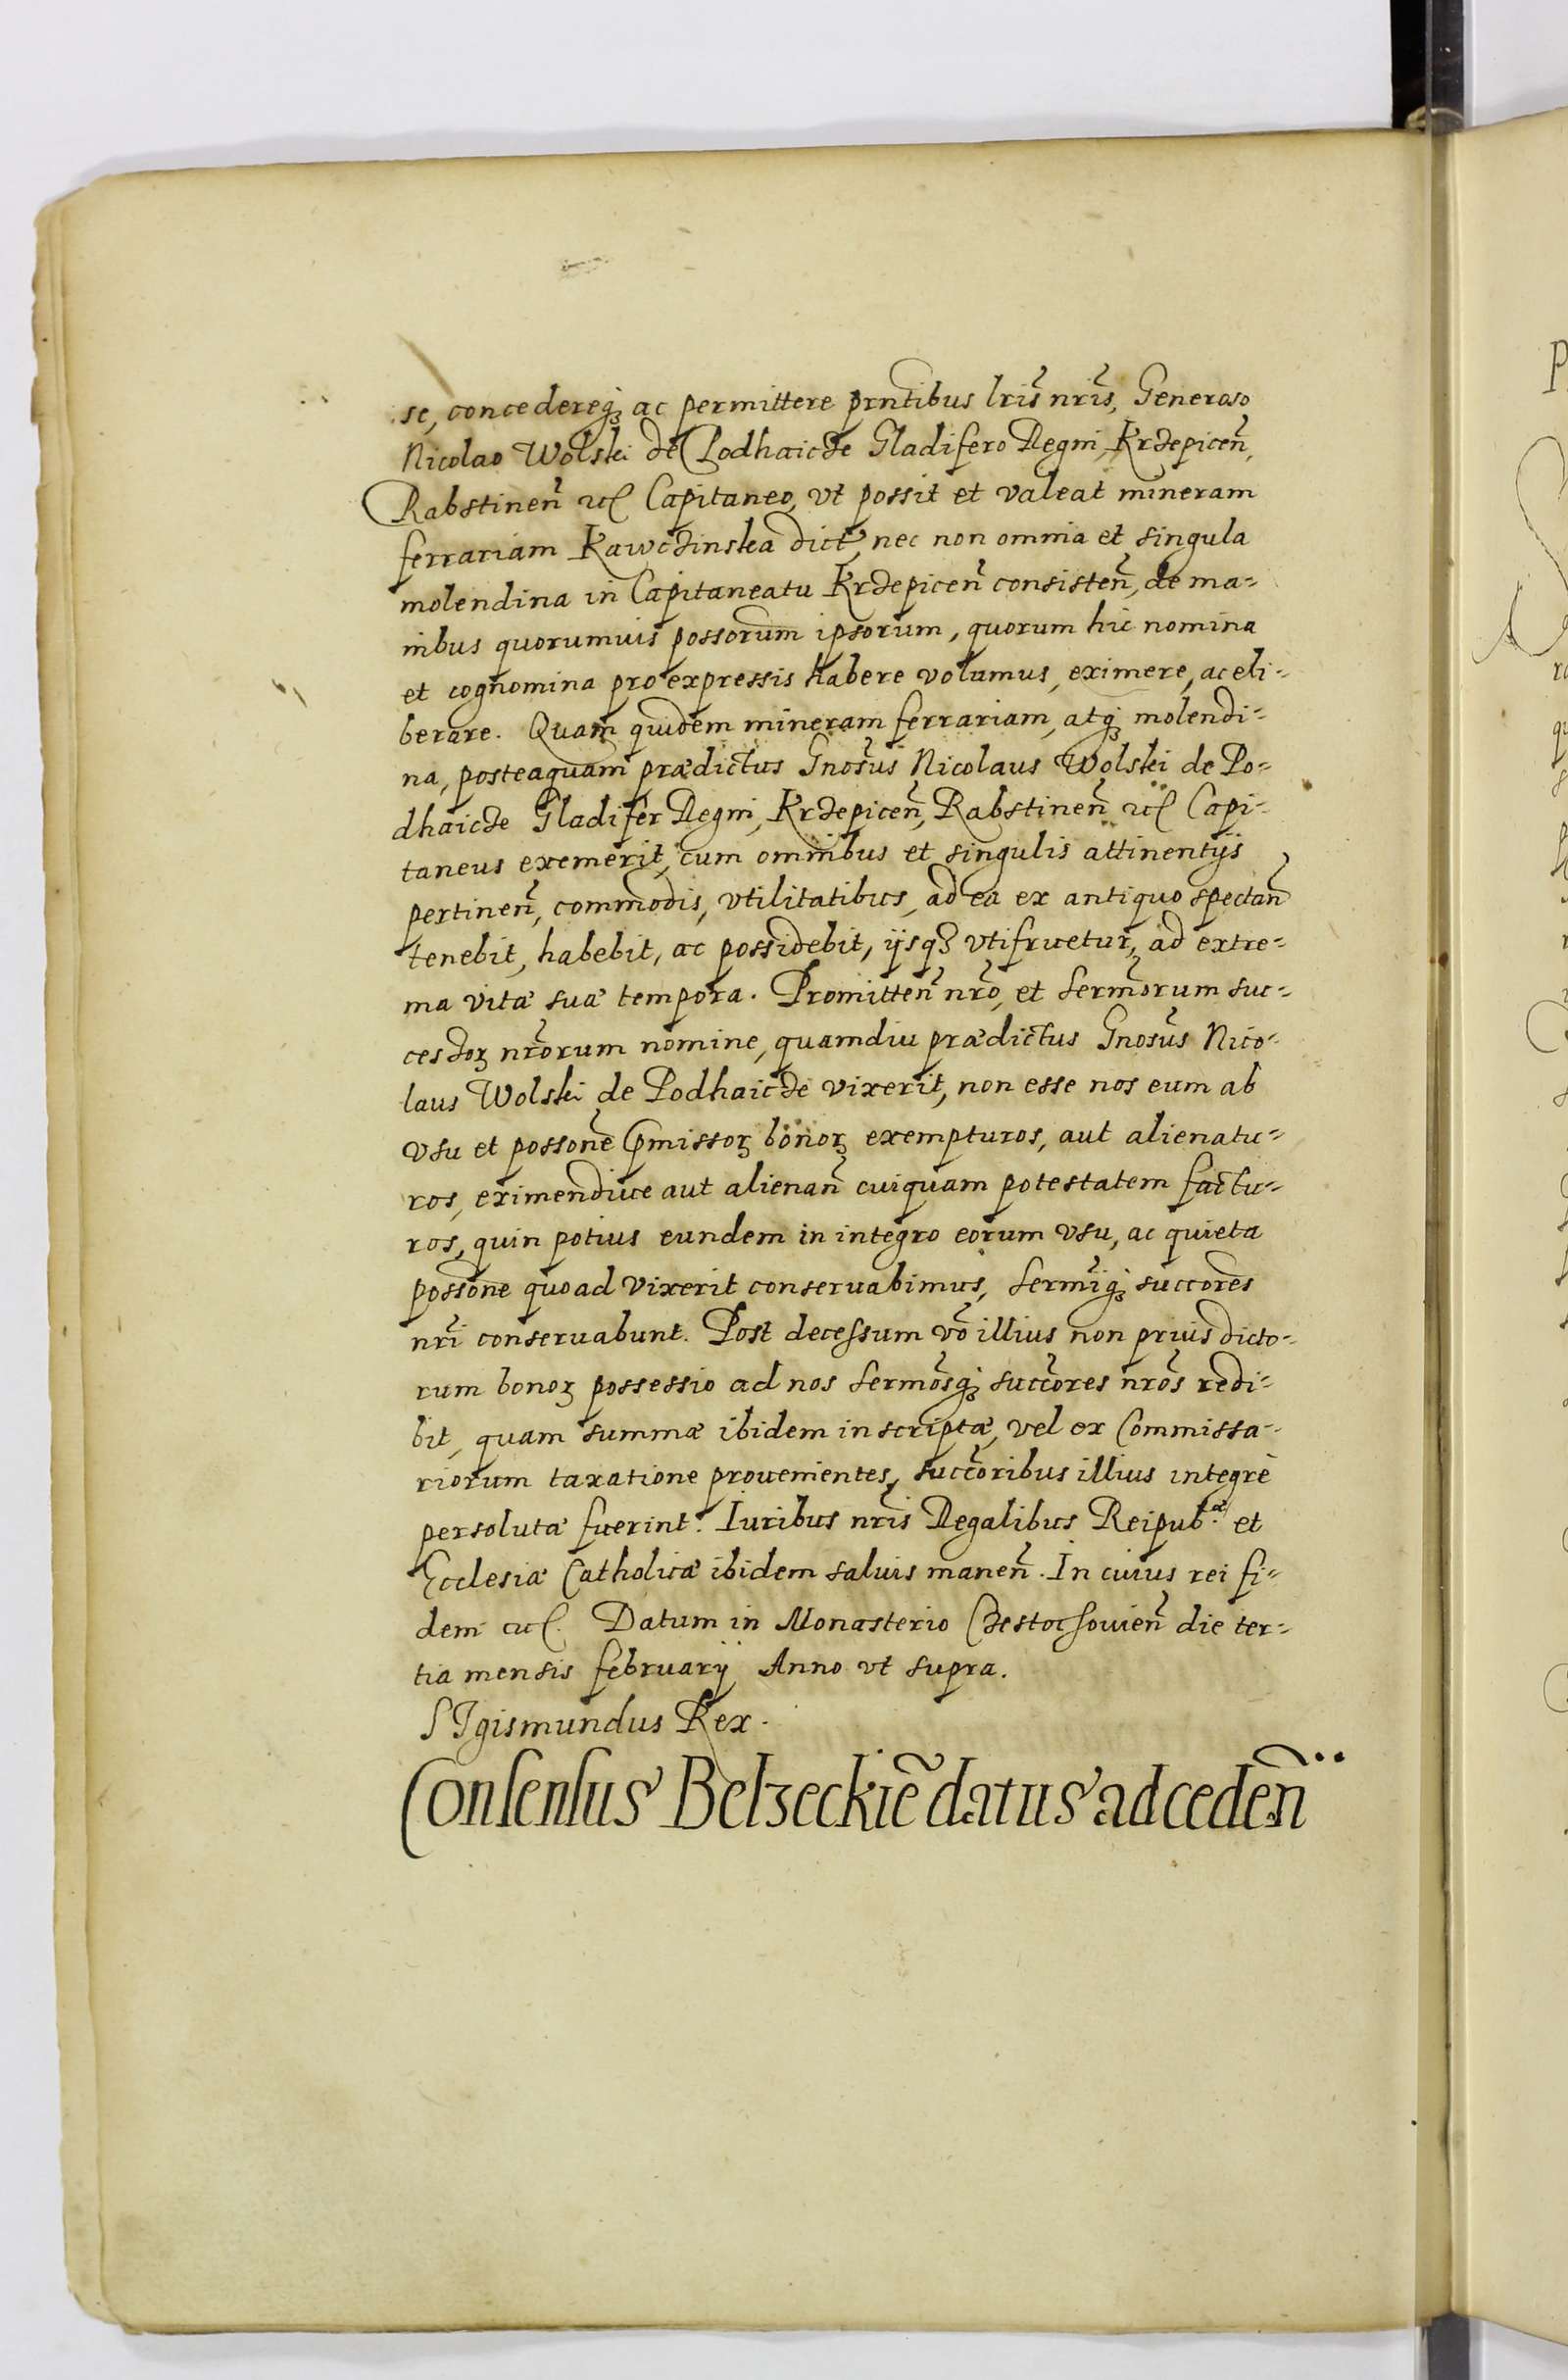 se, concedereq₃ ac permittere prntibus lris nris, Generoso
Nicolao Wolski de Podhaicze Gladifero Regni, Krzepicen̄,
Rabstinen̄ etc Capitaneo, vt possit et valeat mineram
ferrariam Kawczinska dict, nec non omnia et singula
molendina in Capitaneatu Krzepicen̄ consisten̄, de ma-
nibus quorumuis possorum ipsorum, quorum hic nomina
et cognomina pro expressis habere volumus, eximere, ac eli-
berare. Quam quidem mineram ferrariam, atq₃ molendi-
na, posteaquam prædictus Gnosus Nicolaus Wolski de Po-
dhaicze Gladifer Regni, Krzepicen̄, Rabstinen̄ etc Capi-
taneus exemerit, cum omnibus et singulis attinentijs
pertinen̄, commodis, vtilitatibus, ad ea ex antiquo spectan̄
tenebit, habebit, ac possidebit, ijsq₃ vtifruetur, ad extre-
ma vitæ suæ tempora. Promitten̄ nro, et sermorum suc-
cessoꝝ nrorum nomine, quamdiu prædictus Gnosus Nico-
laus Wolski de Podhaicze vixerit, non esse nos eum ab
vsu et possone pmissoꝝ bonoꝝ exempturos, aut alienatu-
ros, eximendiue aut alienan̄ cuiquam potestatem factu-
ros, quin potius eundem in integro eorum vsu, ac quieta
possone quoad vixerit conseruabimus, sermiq₃ succores
nri conseruabunt. Post decessum vo illius non prius dicto-
rum bonoꝝ possessio ad nos sermosq₃ succores nros redi-
bit, quam summæ ibidem inscriptæ, vel ex Commissa-
riorum taxatione prouenientes, succoribus illius integrè
persolutæ fuerint. Iuribus nris Regalibus Reipub.æ et
Ecclesiæ Catholicæ ibidem saluis manen̄. In cuius rei fi-
dem etc. Datum in Monasterio Czestochouien̄ die ter-
tia mensis februarij Anno vt supra.
SIgismundus Rex.
Consensus Belzeckiē datus ad ceden̄